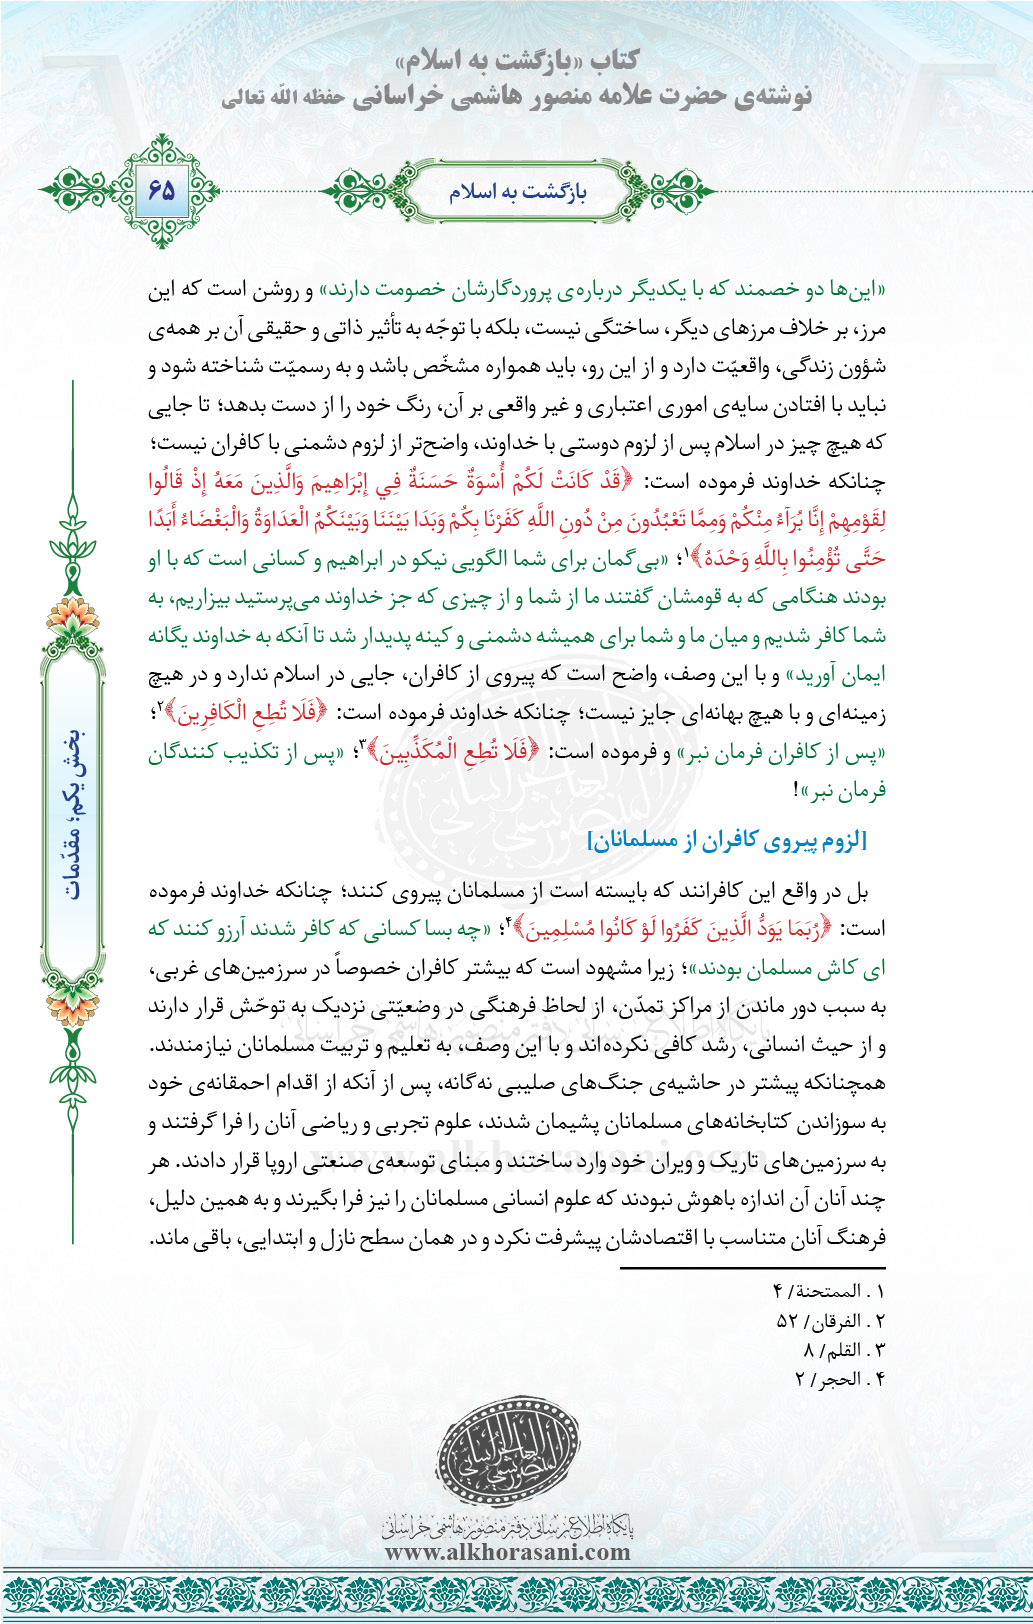 کتاب «بازگشت به اسلام»
نوشته‌ی حضرت علامه منصور هاشمی خراسانی حفظه الله تعالی
۶۵
بازگشت به اسلام
«این‌ها دو خصمند که با یکدیگر درباره‌ی پروردگارشان خصومت دارند» و روشن است که این
مرز، بر خلاف مرزهای دیگر، ساختگی نیست، بلکه با توجّه به تأثیر ذاتی و حقیقی آن بر همه‌ی
شؤون زندگی، واقعیّت دارد و از این رو، باید همواره مشخّص باشد و به رسمیّت شناخته شود و
نباید با افتادن سایه‌ی اموری اعتباری و غیر واقعی بر آن، رنگ خود را از دست بدهد؛ تا جایی
که هیچ چیز در اسلام پس از لزوم دوستی با خداوند، واضح‌تر از لزوم دشمنی با کافران نیست؛
چنانکه خداوند فرموده است: ﴿قَدْ كَانَتْ لَكُمْ أُسْوَةٌ حَسَنَةٌ فِي إِبْرَاهِيمَ وَالَّذِينَ مَعَهُ إِذْ قَالُوا
لِقَوْمِهِمْ إِنَّا بُرَآءُ مِنْكُمْ وَمِمَّا تَعْبُدُونَ مِنْ دُونِ اللَّهِ كَفَرْنَا بِكُمْ وَبَدَا بَيْنَنَا وَبَيْنَكُمُ الْعَدَاوَةُ وَالْبَغْضَاءُ أَبَدًا
حَتَّى تُؤْمِنُوا بِاللَّهِ وَحْدَهُ﴾۱؛ «بی‌گمان برای شما الگویی نیکو در ابراهیم و کسانی است که با او
بودند هنگامی که به قومشان گفتند ما از شما و از چیزی که جز خداوند می‌پرستید بیزاریم، به
شما کافر شدیم و میان ما و شما برای همیشه دشمنی و کینه پدیدار شد تا آنکه به خداوند یگانه
ایمان آورید» و با این وصف، واضح است که پیروی از کافران، جایی در اسلام ندارد و در هیچ
زمینه‌ای و با هیچ بهانه‌ای جایز نیست؛ چنانکه خداوند فرموده است: ﴿فَلَا تُطِعِ الْكَافِرِينَ﴾۲؛
«پس از کافران فرمان نبر» و فرموده است: ﴿فَلَا تُطِعِ الْمُكَذِّبِينَ﴾۳؛ «پس از تکذیب کنندگان
فرمان نبر»!
[لزوم پیروی کافران از مسلمانان]
بل در واقع این کافرانند که بایسته است از مسلمانان پیروی کنند؛ چنانکه خداوند فرموده
است: ﴿رُبَمَا يَوَدُّ الَّذِينَ كَفَرُوا لَوْ كَانُوا مُسْلِمِينَ﴾۴؛ «چه بسا کسانی که کافر شدند آرزو کنند که
ای کاش مسلمان بودند»؛ زیرا مشهود است که بیشتر کافران خصوصاً در سرزمین‌های غربی،
به سبب دور ماندن از مراکز تمدّن، از لحاظ فرهنگی در وضعیّتی نزدیک به توحّش قرار دارند
و از حیث انسانی، رشد کافی نکرده‌اند و با این وصف، به تعلیم و تربیت مسلمانان نیازمندند.
همچنانکه پیشتر در حاشیه‌ی جنگ‌های صلیبی نه‌گانه، پس از آنکه از اقدام احمقانه‌ی خود
به سوزاندن کتابخانه‌های مسلمانان پشیمان شدند، علوم تجربی و ریاضی آنان را فرا گرفتند و
به سرزمین‌های تاریک و ویران خود وارد ساختند و مبنای توسعه‌ی صنعتی اروپا قرار دادند. هر
چند آنان آن اندازه باهوش نبودند که علوم انسانی مسلمانان را نیز فرا بگیرند و به همین دلیل،
فرهنگ آنان متناسب با اقتصادشان پیشرفت نکرد و در همان سطح نازل و ابتدایی، باقی ماند.
بخش یکم؛ مقدّمات
۱ . الممتحنة/ ۴
۲ . الفرقان/ ۵۲
۳ . القلم/ ۸
۴ . الحجر/ ۲
پایگاه اطلاع‌رسانی دفتر منصور هاشمی خراسانی
www.alkhorasani.com